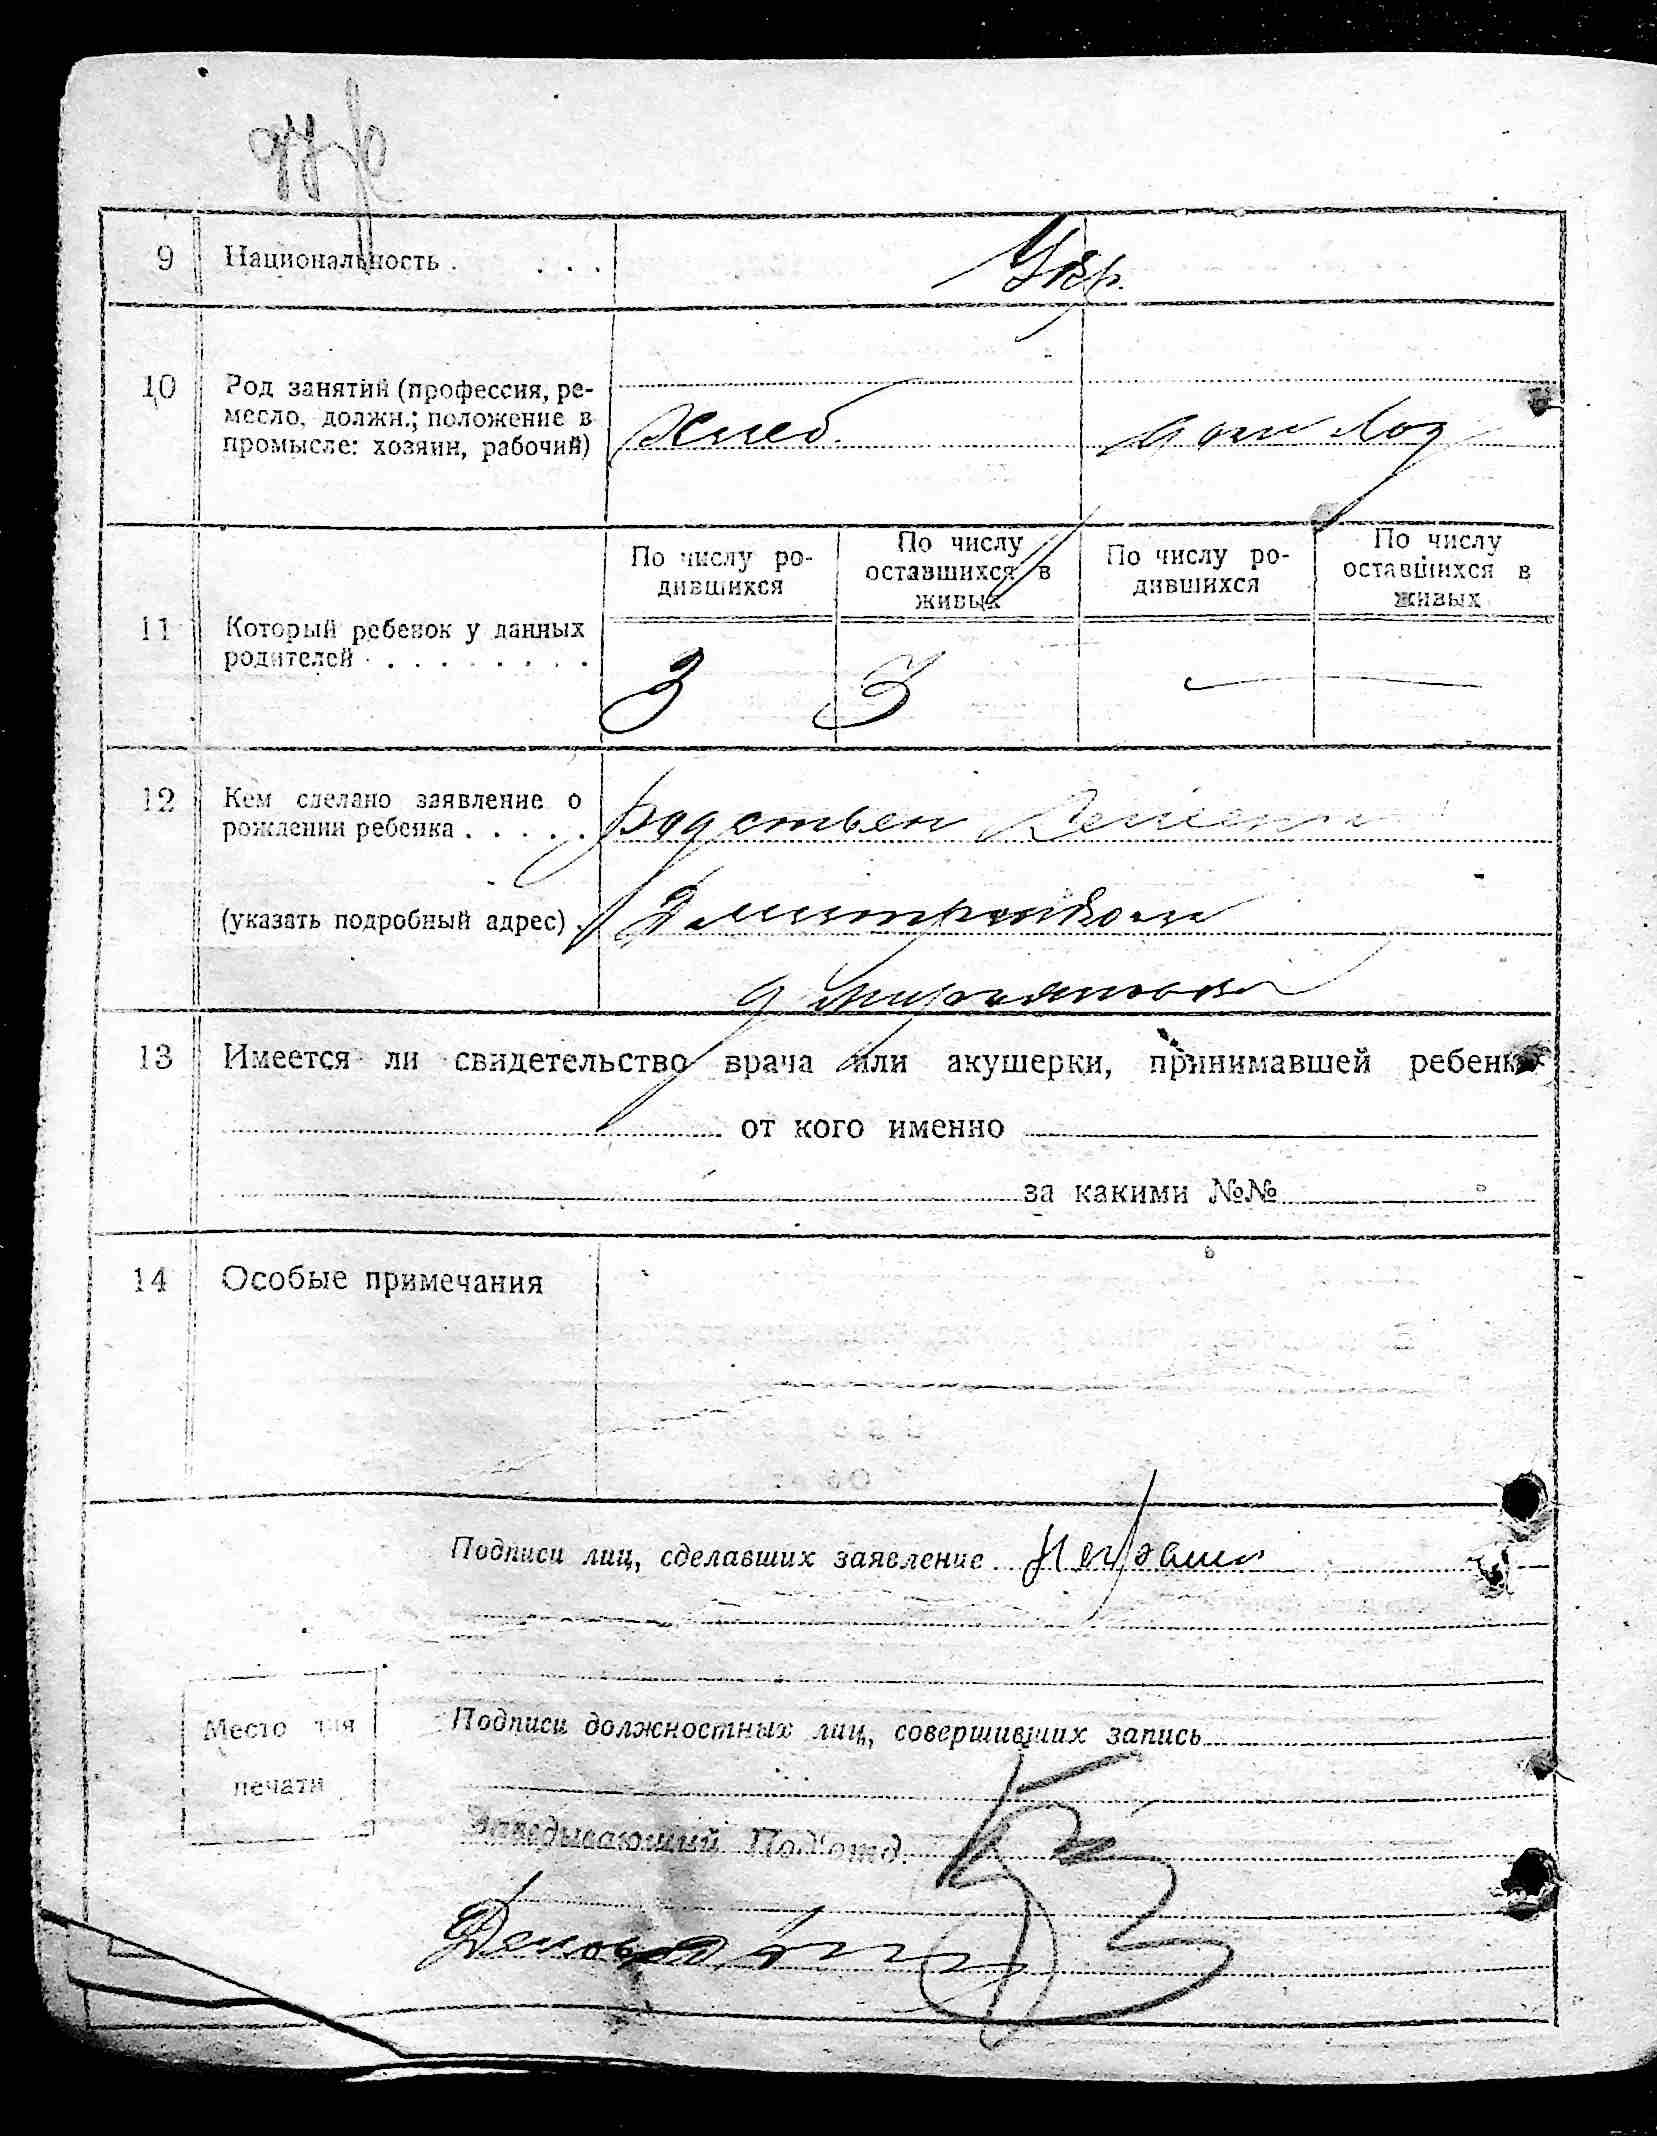 9 Национальность . . . . Укр.
10 Род занятий (профессия, ре-
месло, должн.; положение в
промысле: хозяин, рабочий)
Хлеб. дом хоз
11 Который ребенок у данных
родителей . . . . . . . . .
По числу ро-
дившихся
По числу
оставшихся в
живых
По числу ро-
дившихся
По числу
оставшихся в
живых
3 3 —
12 Кем сделано заявление о
рождении ребенка . . . . .
родствен
(указать подробный адрес) .
13 Имеется ли свидетельство врача или акушерки, принимавшей ребенка
от кого именно
за какими №№
14 Особые примечания
Подписи лиц, сделавших заявление Неграмот
Место для
печати
Подписи должностных лиц, совершивших запись
Заведывающий Под'отд.